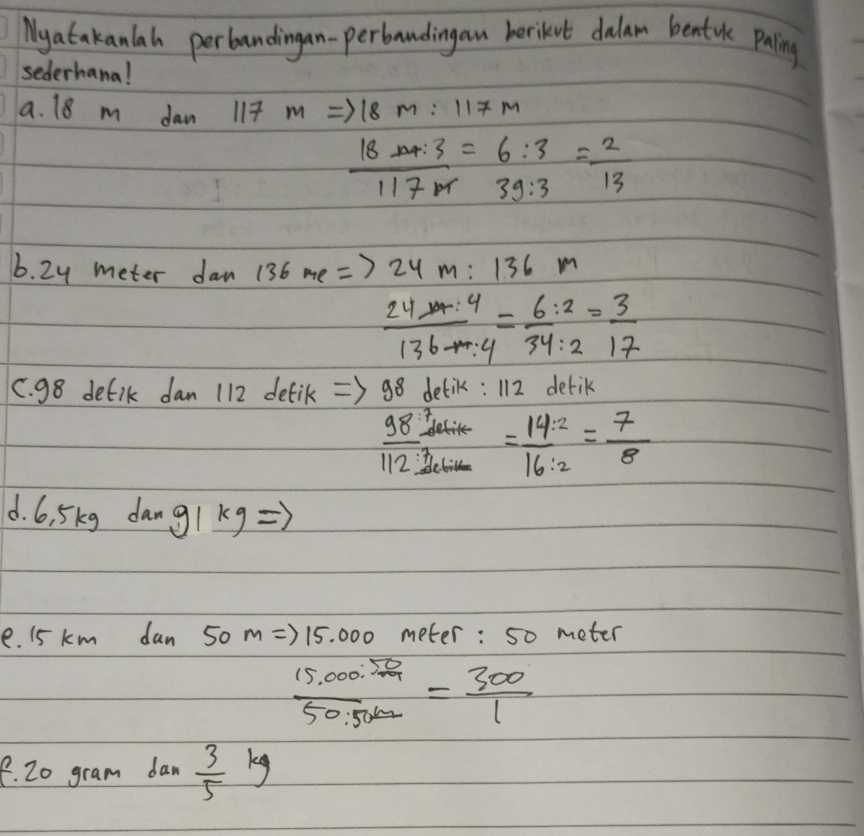 Nyatakanlah perbandingan-perbandingan berikut dalam bentuk paling
sederhana!
a. 18 m dan 117 m => 18 m : 117 m
18 m : 3 = 6 : 3 = 2
117 m 39 : 3 13
b. 24 meter dan 136 me => 24 m : 136 m
24 m : 4 = 6 : 2 = 3
136 m : 4 34 : 2 17
c. 98 detik dan 112 detik => 98 detik : 112 detik
98 : 7 detik = 14 : 2 = 7
112 : 7 detik 16 : 2 8
d. 6,5 kg dan 91 kg =>
e. 15 km dan 50 m => 15.000 meter : 50 meter
15.000 : 50 = 300
50 : 50 1
f. 20 gram dan 3/5 kg